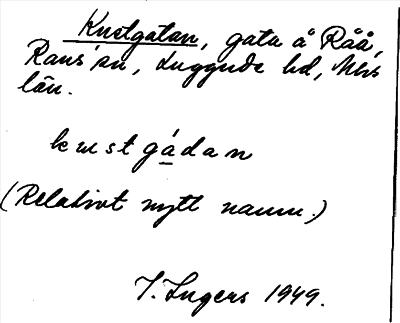 Kustgatan, gata å Råå,
Raus sn, Luggude hd, Mhs
län.
kustgádan
(Relativt nytt namn.)
I. Ingers 1949.